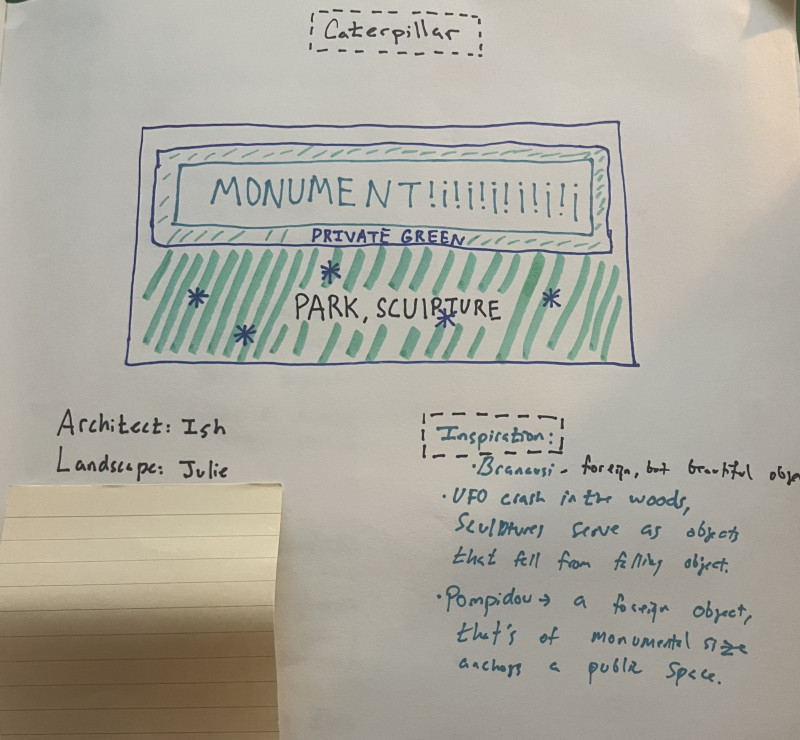 Caterpillar
MONUMENT!i!i!i!i!i!i
PRIVATE GREEN
PARK, SCULPTURE
Architect: Ish
Landscape: Julie
Inspiration:
• Brancusi - foreign, but beautiful obje
• UFO crash in the woods,
Sculptures serve as objects
that fell from falling object.
• Pompidou → a foreign object,
that's of monumental size
anchors a public space.